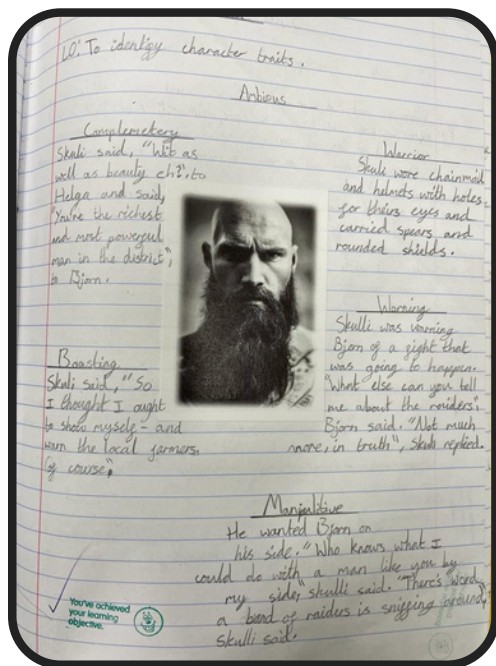 LO: To identify character traits.
Anbious
Complemetery
Skuli said, "Wit as
well as beauty eh?", to
Helga and said,
"You're the richest
and most powerful
man in the district",
to Bjorn.
Warrior
Skuli wore chainmail
and helmets with holes
for theirs eyes and
carried spears and
rounded shields.
Warning
Skulli was warning
Bjorn of a fight that
was going to happen.
"What else can you tell
me about the raiders",
Bjorn said. "Not much
more, in truth", Skuli replied.
Boasting
Skuli said, "So
I thought I ought
to show myself - and
warn the local farmers,
of course",
Manipulitive
He wanted Bjorn on
his side. "Who knows what I
could do with a man like you by
my side," skulli said. "There's word
a band of raiders is sniffing around",
Skulli said.
You've achieved
your learning
objective.